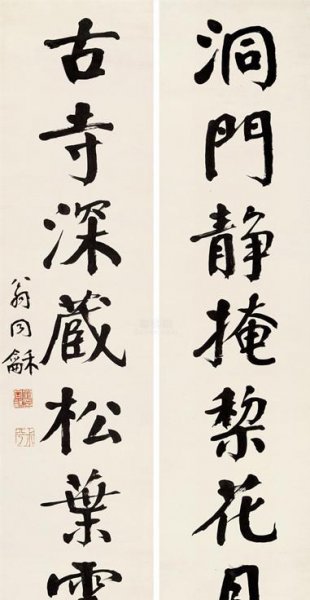 洞門静掩棃花月
古寺深蔵松葉雲
翁同龢